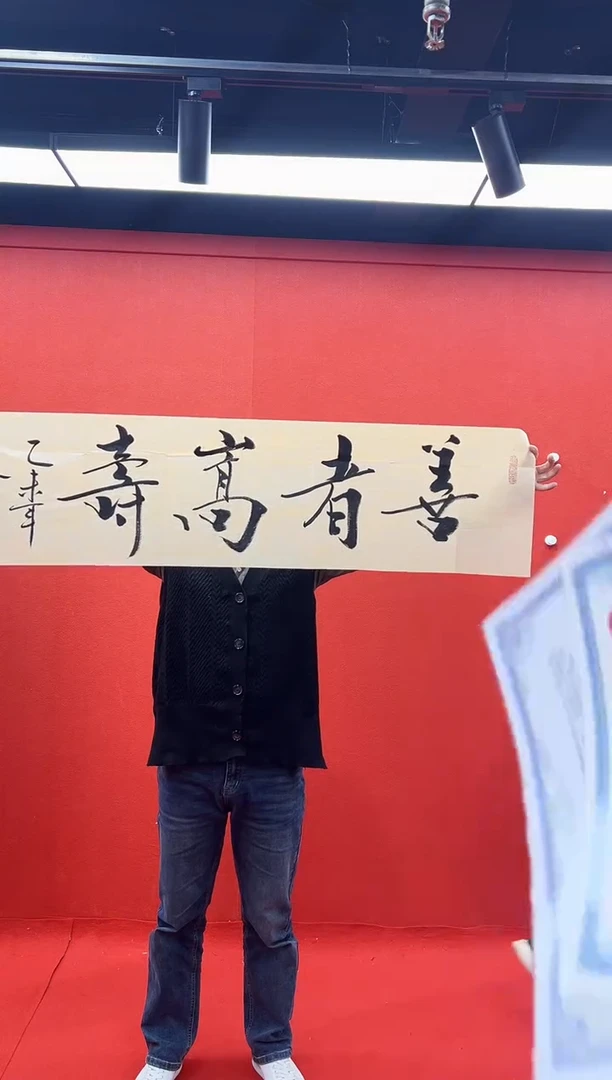 善者嵩壽
乙未年